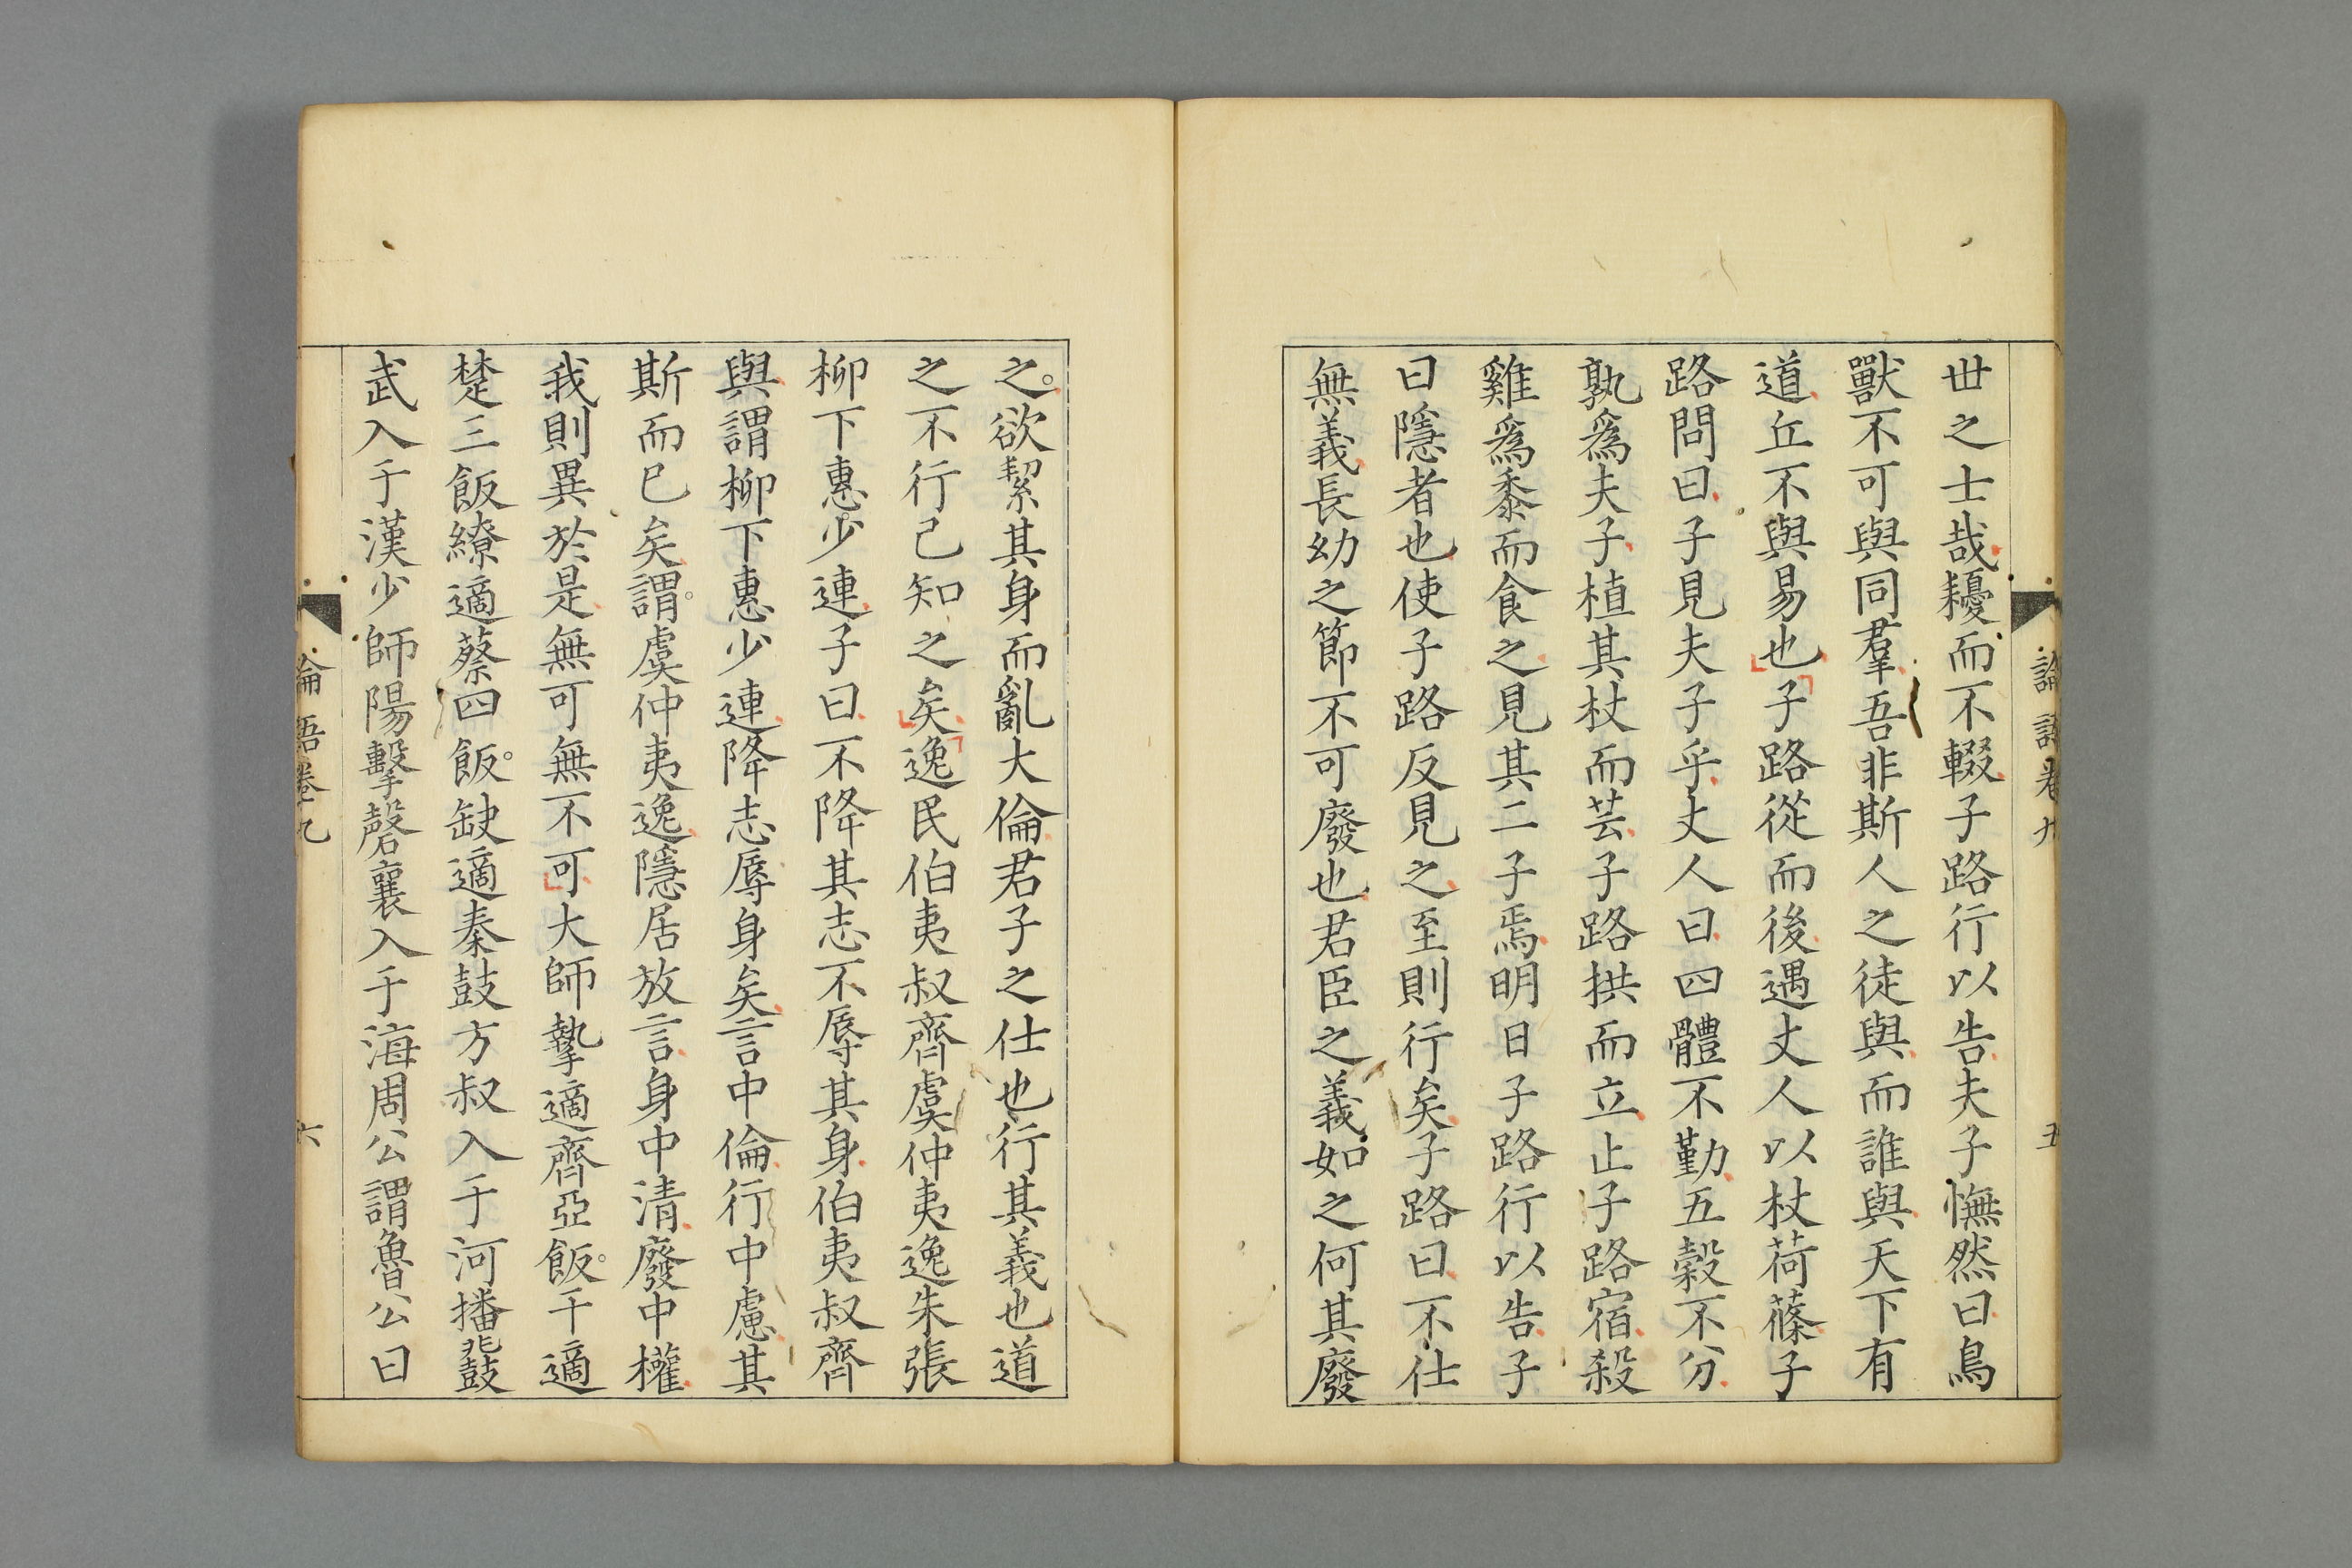 論語卷九 五
世之士哉耰而不輟子路行以告夫子憮然曰鳥
獸不可與同羣吾非斯人之徒與而誰與天下有
道丘不與易也子路從而後遇丈人以杖荷蓧子
路問曰子見夫子乎丈人曰四體不勤五穀不分
孰爲夫子植其杖而芸子路拱而立止子路宿殺
雞爲黍而食之見其二子焉明日子路行以告子
曰隱者也使子路反見之至則行矣子路曰不仕
無義長幼之節不可廢也君臣之義如之何其廢
之欲絜其身而亂大倫君子之仕也行其義也道
之不行己知之矣逸民伯夷叔齊虞仲夷逸朱張
柳下惠少連子曰不降其志不辱其身伯夷叔齊
與謂柳下惠少連降志辱身矣言中倫行中慮其
斯而已矣謂虞仲夷逸隱居放言身中清廢中權
我則異於是無可無不可大師摯適齊亞飯干適
楚三飯繚適蔡四飯缺適秦鼓方叔入于河播鼗
武入于漢少師陽擊磬襄入于海周公謂魯公曰
論語卷九 六